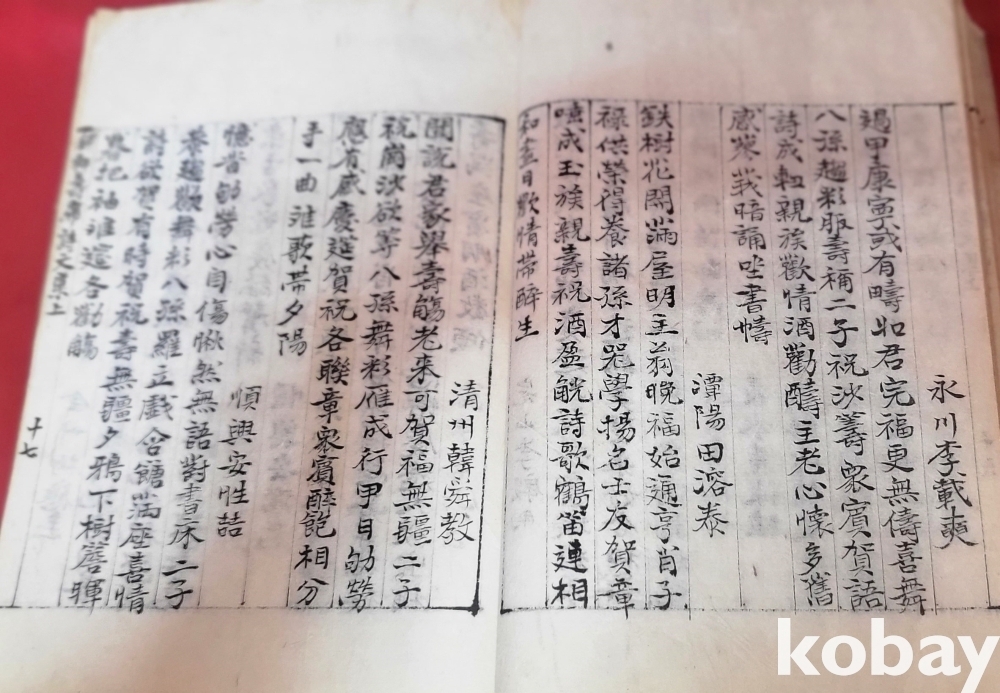 永川李載奭
甲康寧或有疇如君完福更無儔喜舞
八孫趨彩服壽補二子祝沙籌衆賓賀語
詩成軸親族歡情酒勸醻主老心懷多舊
感寒莪暗誦坐書幬
潭陽田溶泰
鉄樹花開滿屋明主翁晚福始通亨肖子
祿供榮得養諸孫才器學揚名士友賀章
嘻成玉族親壽祝酒盈觥詩歌鶴笛連相
和盡日歡情帶醉生
清州韓舜教
聞說君家舉壽觴老來可賀福無疆二子
祝崗沙欲等八孫舞彩雁成行甲日劬勞
應有感慶筵賀祝各聯章衆賓醉飽相分
手一曲漁歌帶夕陽
順興安性喆
憶昔劬勞心自傷愀然無語對書床二子
養趨歡舞彩八孫羅立戲含飴滿座喜情
詩欲賀有時賀祝壽無疆夕鴉下樹簷暉
暮把袖進筵各勸觴
詩文集上
十七
kobay